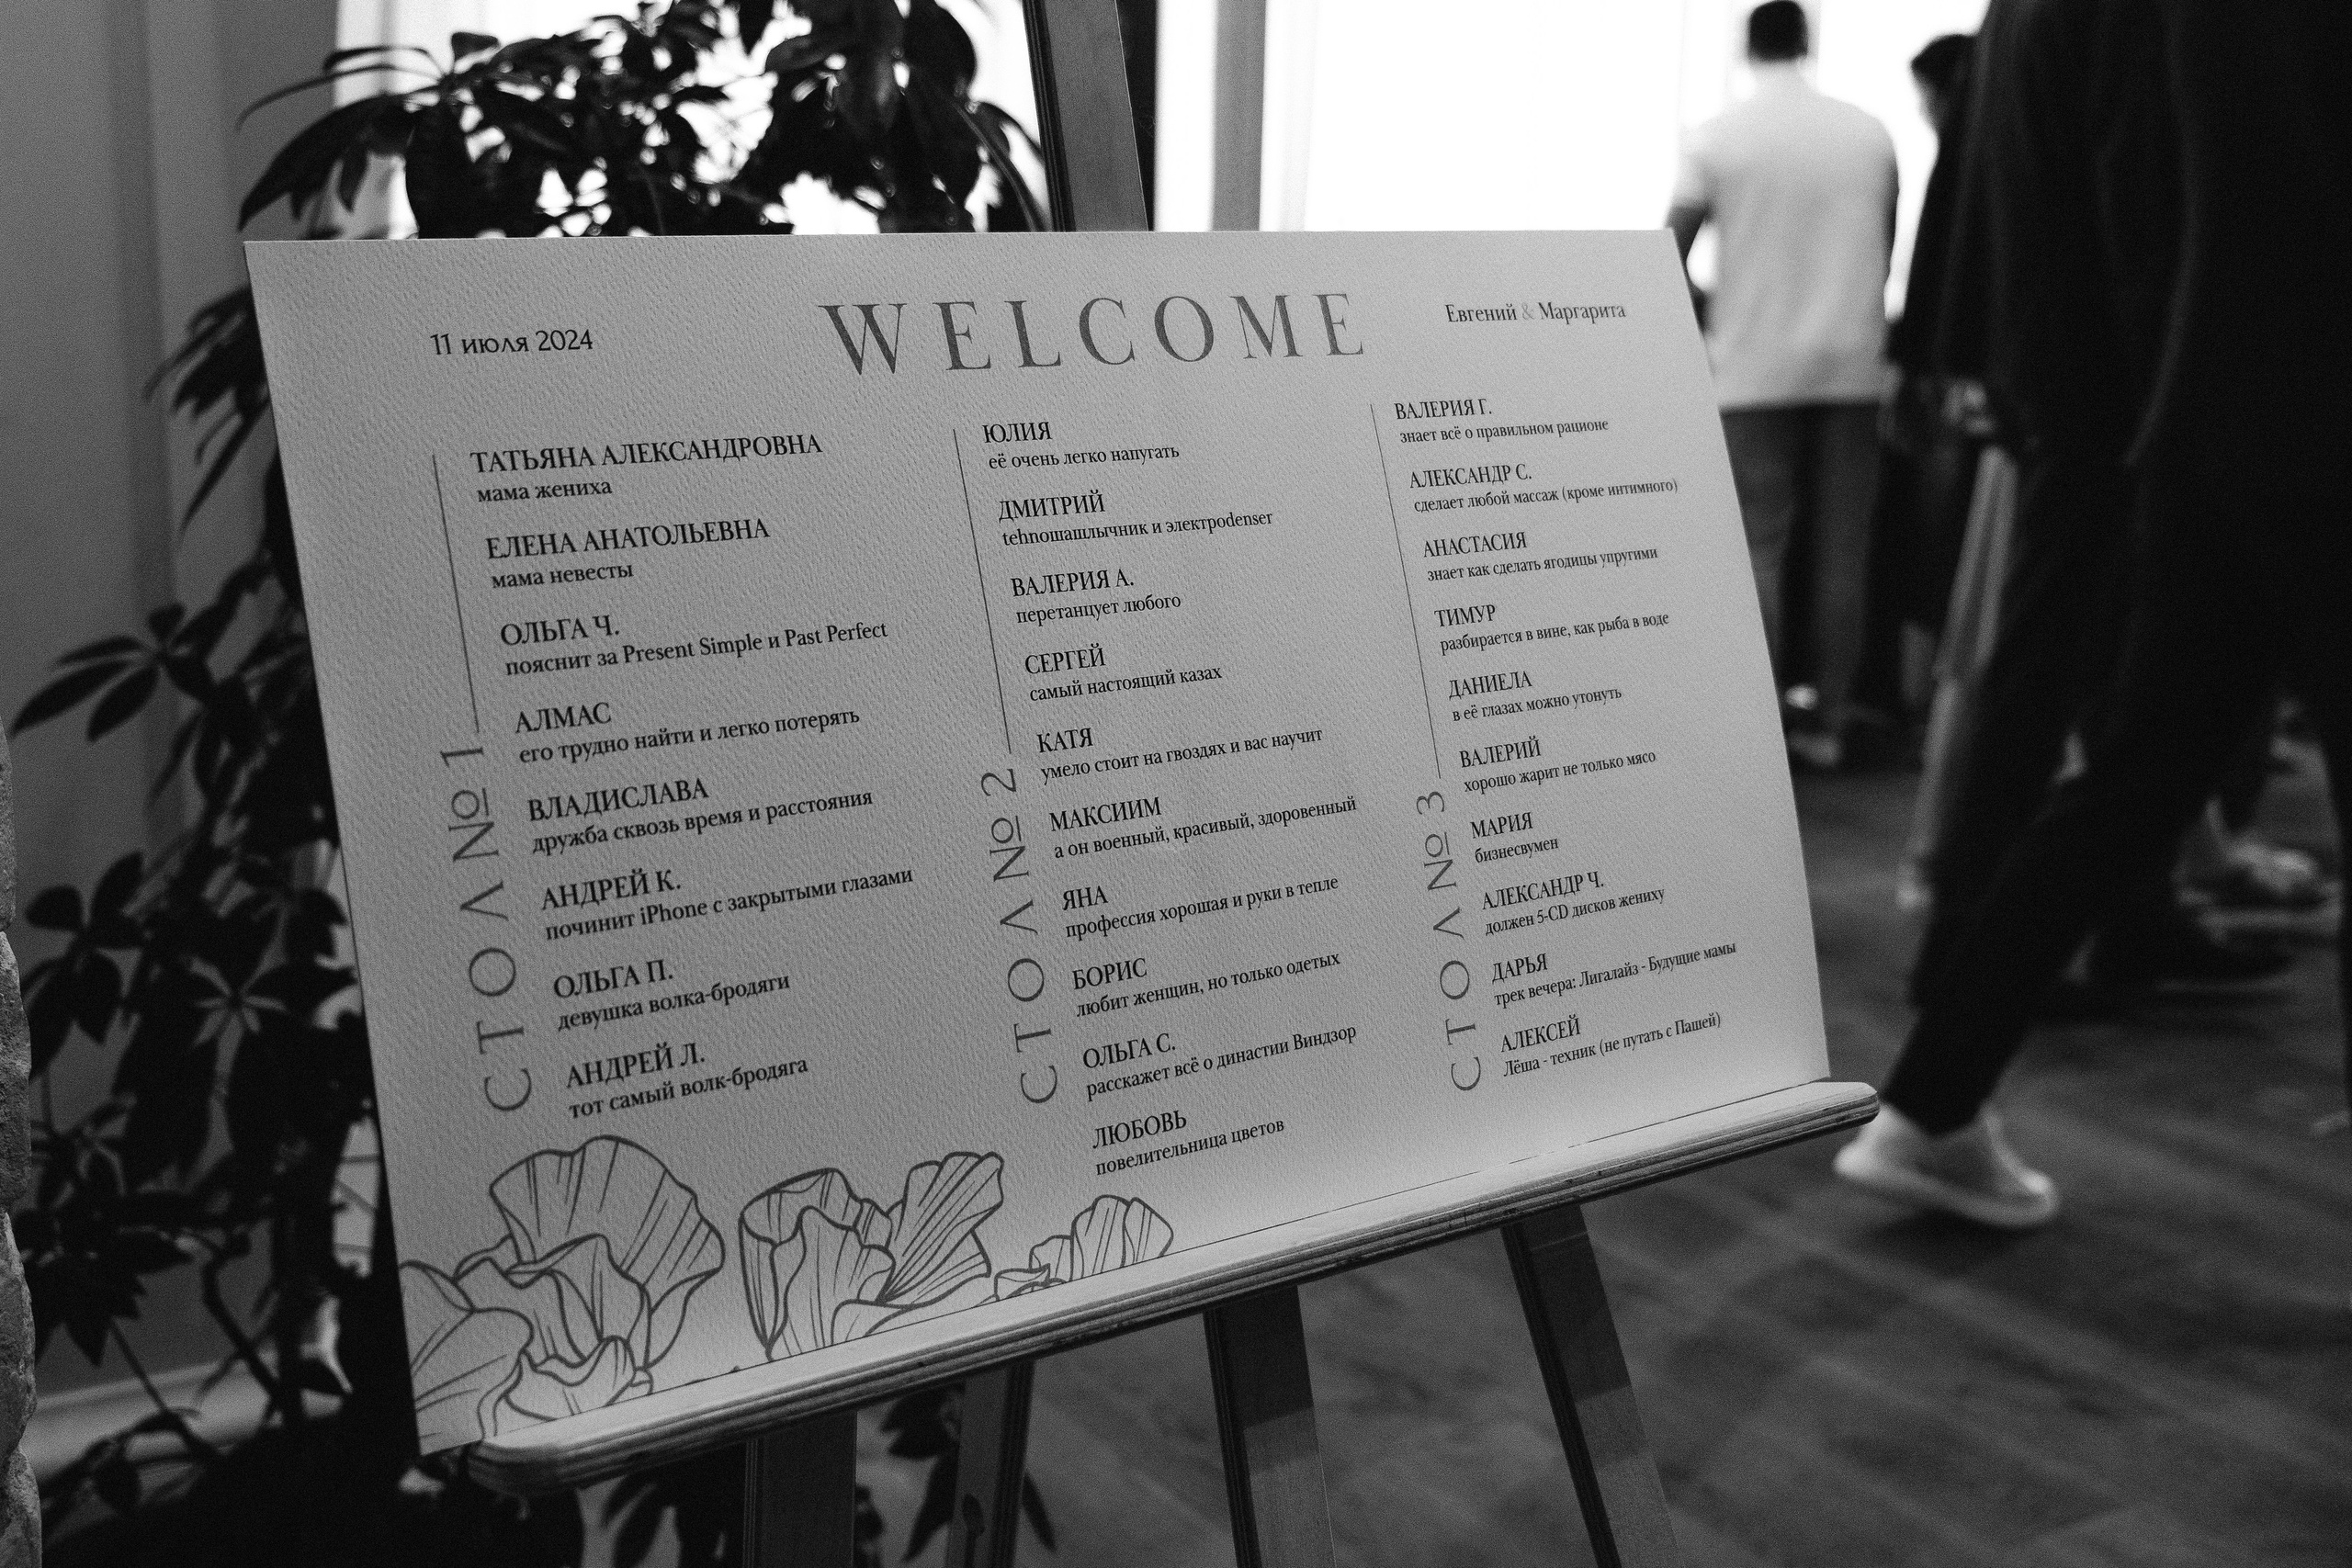 11 июля 2024
WELCOME
Евгений & Маргарита
СТОЛ №1
ТАТЬЯНА АЛЕКСАНДРОВНА
мама жениха
ЕЛЕНА АНАТОЛЬЕВНА
мама невесты
ОЛЬГА Ч.
пояснит за Present Simple и Past Perfect
АЛМАС
его трудно найти и легко потерять
ВЛАДИСЛАВА
дружба сквозь время и расстояния
АНДРЕЙ К.
починит iPhone с закрытыми глазами
ОЛЬГА П.
девушка волка-бродяги
АНДРЕЙ Л.
тот самый волк-бродяга
СТОЛ №2
ЮЛИЯ
её очень легко напугать
ДМИТРИЙ
tehnошашлычник и электроdenser
ВАЛЕРИЯ А.
перетанцует любого
СЕРГЕЙ
самый настоящий казах
КАТЯ
умело стоит на гвоздях и вас научит
МАКСИИМ
а он военный, красивый, здоровенный
ЯНА
профессия хорошая и руки в тепле
БОРИС
любит женщин, но только одетых
ОЛЬГА С.
расскажет всё о династии Виндзор
ЛЮБОВЬ
повелительница цветов
СТОЛ №3
ВАЛЕРИЯ Г.
знает всё о правильном рационе
АЛЕКСАНДР С.
сделает любой массаж (кроме интимного)
АНАСТАСИЯ
знает как сделать ягодицы упругими
ТИМУР
разбирается в вине, как рыба в воде
ДАНИЕЛА
в её глазах можно утонуть
ВАЛЕРИЙ
хорошо жарит не только мясо
МАРИЯ
бизнесвумен
АЛЕКСАНДР Ч.
должен 5-CD дисков жениху
ДАРЬЯ
трек вечера: Лигалайз - Будущие мамы
АЛЕКСЕЙ
Лёша - техник (не путать с Пашей)